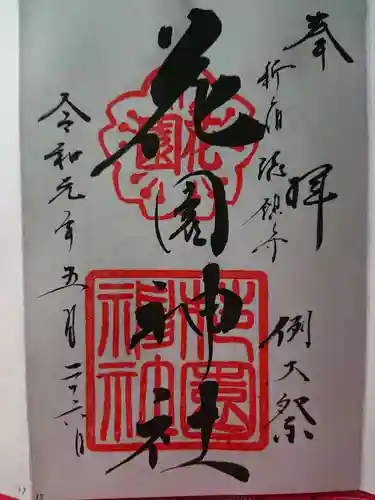 奉拝
新宿総鎮守
例大祭
花園神社
花園
花園神社
令和元年五月二十六日